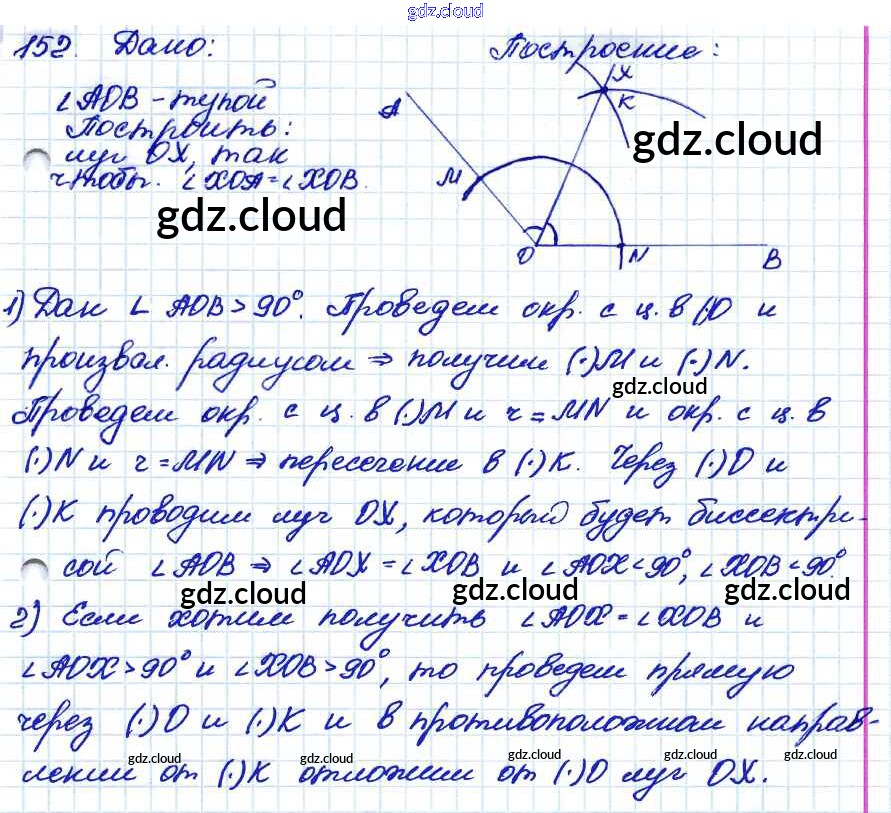 gdz.cloud
152. Дано: Построение:
∠AOB - тупой
Построить:
луч OX, так
чтобы. ∠XOA = ∠XOB.
A M O N B X K
gdz.cloud
gdz.cloud
1) Дан ∠ AOB > 90°. Проведем окр. с ц. в (·)O и
произвол. радиусом ⇒ получим (·)M и (·)N.
gdz.cloud
Проведем окр. с ц. в (·)M и r = MN и окр. с ц. в
(·)N и r = MN ⇒ пересечение в (·)K. Через (·)O и
gdz.cloud
(·)K проводим луч OX, который будет биссектри-
сой ∠AOB ⇒ ∠AOX = ∠XOB и ∠AOX < 90°, ∠XOB < 90°.
gdz.cloud gdz.cloud gdz.cloud
2) Если хотим получить ∠AOX = ∠XOB и
∠AOX > 90° и ∠XOB > 90°, то проведем прямую
через (·)O и (·)K и в противоположном направ-
gdz.cloud gdz.cloud gdz.cloud gdz.cloud gdz.cloud
лении от (·)K отложим от (·)O луч OX.